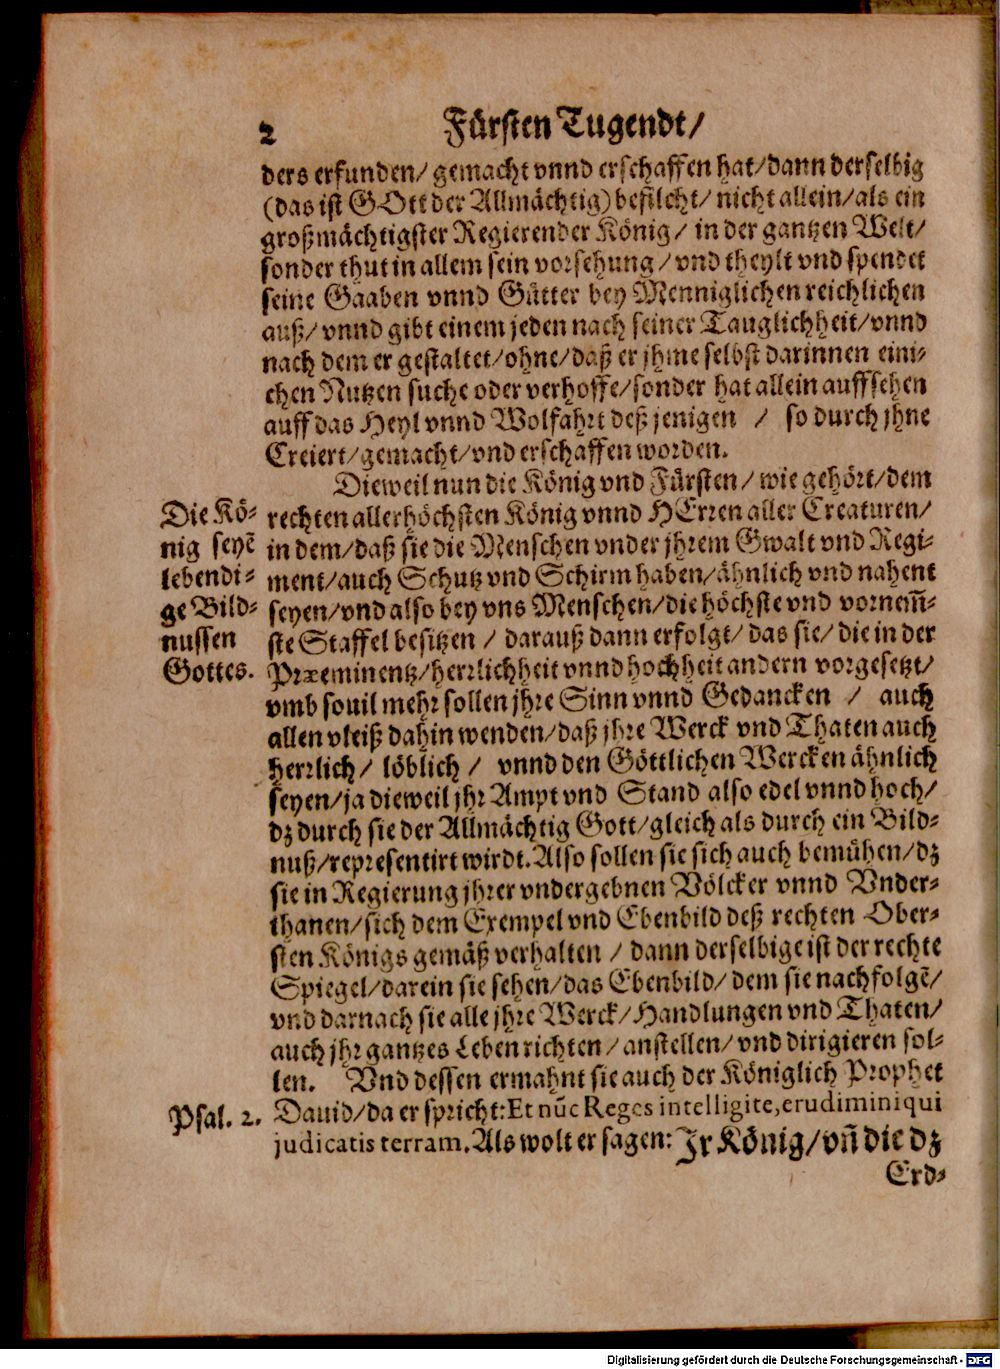 2 Fürsten Tugendt/
ders erfunden/ gemacht vnnd erschaffen hat/dann derselbig
(das ist GOtt der Allmächtig) befilcht/ nicht allein/als ein
großmächtigster Regierender König/ in der gantzen Welt/
sonder thut in allem sein vorsehung/vnd theylt vnd spendet
seine Gaaben vnnd Gütter bey Menniglichen reichlichen
auß/ vnnd gibt einem jeden nach seiner Tauglichheit/vnnd
nach dem er gestaltet/ohne/daß er jhme selbst darinnen eini-
chen Nutzen suche oder verhoffe/sonder hat allein auffsehen
auff das Heyl vnnd Wolfahrt deß jenigen / so durch jhne
Creiert/gemacht/vnd erschaffen worden.
Dieweil nun die König vnd Fürsten/ wie gehört/dem
rechten allerhöchsten König vnnd HErren aller Creaturen/
in dem/daß sie die Menschen vnder jhrem Gwalt vnd Regi-
ment/auch Schutz vnd Schirm haben/ähnlich vnd nahent
seyen/vnd also bey vns Menschen/die höchste vnd vornem̄-
ste Staffel besitzen / darauß dann erfolgt/ das sie/ die in der
Præeminentz/herrlichheit vnnd hochheit andern vorgesetzt/
vmb souil mehr sollen jhre Sinn vnnd Gedancken / auch
allen vleiß dahin wenden/daß jhre Werck vnd Thaten auch
herrlich/ löblich / vnnd den Göttlichen Wercken ähnlich
seyen/ja dieweil jhr Ampt vnd Stand also edel vnnd hoch/
dz durch sie der Allmächtig Gott/gleich als durch ein Bild-
nuß/representirt wirdt. Also sollen sie sich auch bemühen/dz
sie in Regierung jhrer vndergebnen Völcker vnnd Vnder-
thanen/sich dem Exempel vnd Ebenbild deß rechten Ober-
sten Königs gemäß verhalten / dann derselbige ist der rechte
Spiegel/darein sie sehen/das Ebenbild/ dem sie nachfolgẽ/
vnd darnach sie alle jhre Werck/Handlungen vnd Thaten/
auch jhr gantzes Leben richten/anstellen/vnd dirigieren sol-
len. Vnd dessen ermahnt sie auch der Königlich Prophet
Dauid/da er spricht: Et nūc Reges intelligite, erudimini qui
judicatis terram. Als wolt er sagen: Jr König/vn̄ die dz
Erd-
Die Kö-
nig seyẽ
lebendi-
ge Bild-
nussen
Gottes.
Psal. 2.
Digitalisierung gefördert durch die Deutsche Forschungsgemeinschaft - DFG